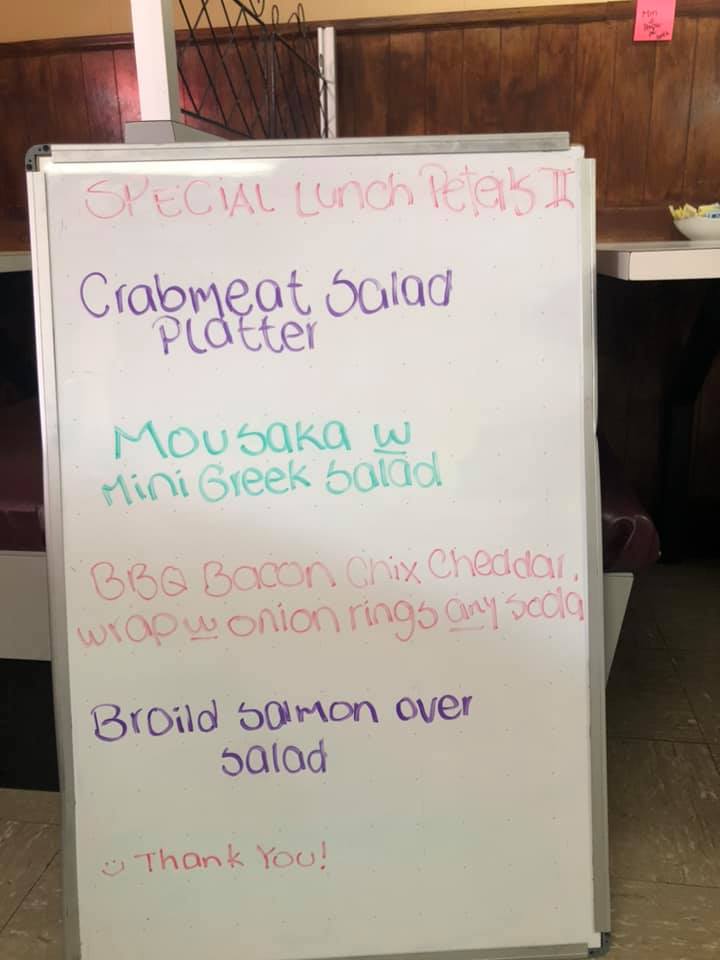 SPECIAL Lunch Peter's II
Crabmeat Salad
Platter
Mousaka w
Mini Greek Salad
BBQ Bacon Chix Cheddar,
wrap w onion rings any soda
Broild salmon over
salad
Thank You!